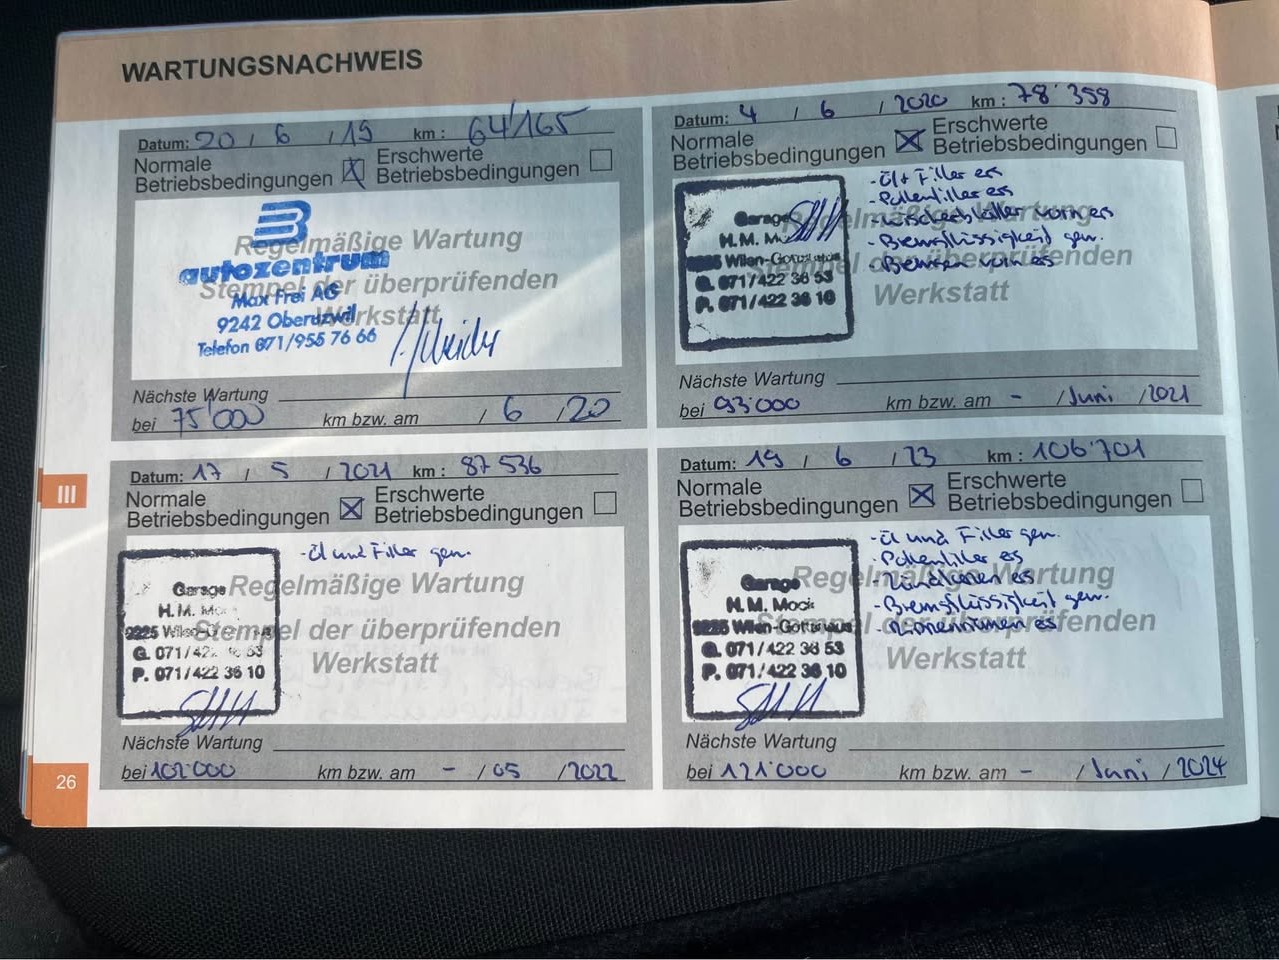 WARTUNGSNACHWEIS
Datum: 20 / 6 / 19 km : 64'165
Normale Betriebsbedingungen ☒ Erschwerte Betriebsbedingungen ☐
Regelmäßige Wartung
autozentrum
Stempel der überprüfenden
Max Frei AG
9242 Oberuzwil
Werkstatt
Telefon 071/955 76 66
Nächste Wartung
bei 75'000 km bzw. am / 6 / 20
Datum: 4 / 6 / 2020 km : 78'358
Normale Betriebsbedingungen ☒ Erschwerte Betriebsbedingungen ☐
- Öl + Filter ers
- Pollenfilter ers
Garage
Regelmäßige Wartung
- Wischerblätter vorn ers
H.M. M
- Bremsflüssigkeit gew.
9225 Wilen-Gottshaus
Stempel der überprüfenden
- Bremsen vorn ers
G. 071/422 36 53
P. 071/422 36 10
Werkstatt
Nächste Wartung
bei 93'000 km bzw. am - / Juni / 2021
III
Datum: 17 / 5 / 2021 km : 87 536
Normale Betriebsbedingungen ☒ Erschwerte Betriebsbedingungen ☐
- Öl und Filter gew.
Garage
Regelmäßige Wartung
H.M.
9225
Stempel der überprüfenden
G. 071/422 53
Werkstatt
P. 071/422 36 10
Nächste Wartung
bei 102'000 km bzw. am - / 05 / 2022
Datum: 19 / 6 / 23 km : 106'701
Normale Betriebsbedingungen ☒ Erschwerte Betriebsbedingungen ☐
- Öl und Filter gew.
- Pollenfilter es
Garage
Regelmäßige Wartung
- Zündkerzen es
H.M. Mock
- Bremsflüssigkeit gew.
9225 Wilen-Gottshaus
Stempel der überprüfenden
- Rippenriemen es
G. 071/422 36 53
Werkstatt
P. 071/422 36 10
Nächste Wartung
bei 121'000 km bzw. am - / Juni / 2024
26